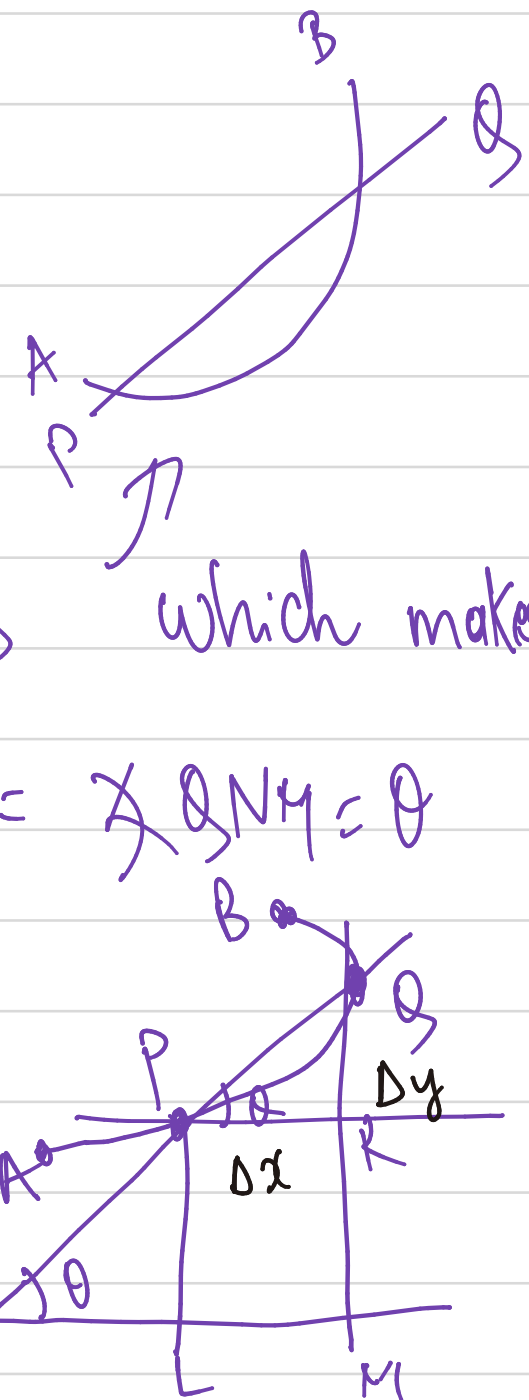 B
Q
A
P
which make
= ∡ QNM = θ
B
Q
P
θ
Δy
K
A
Δx
θ
L
M